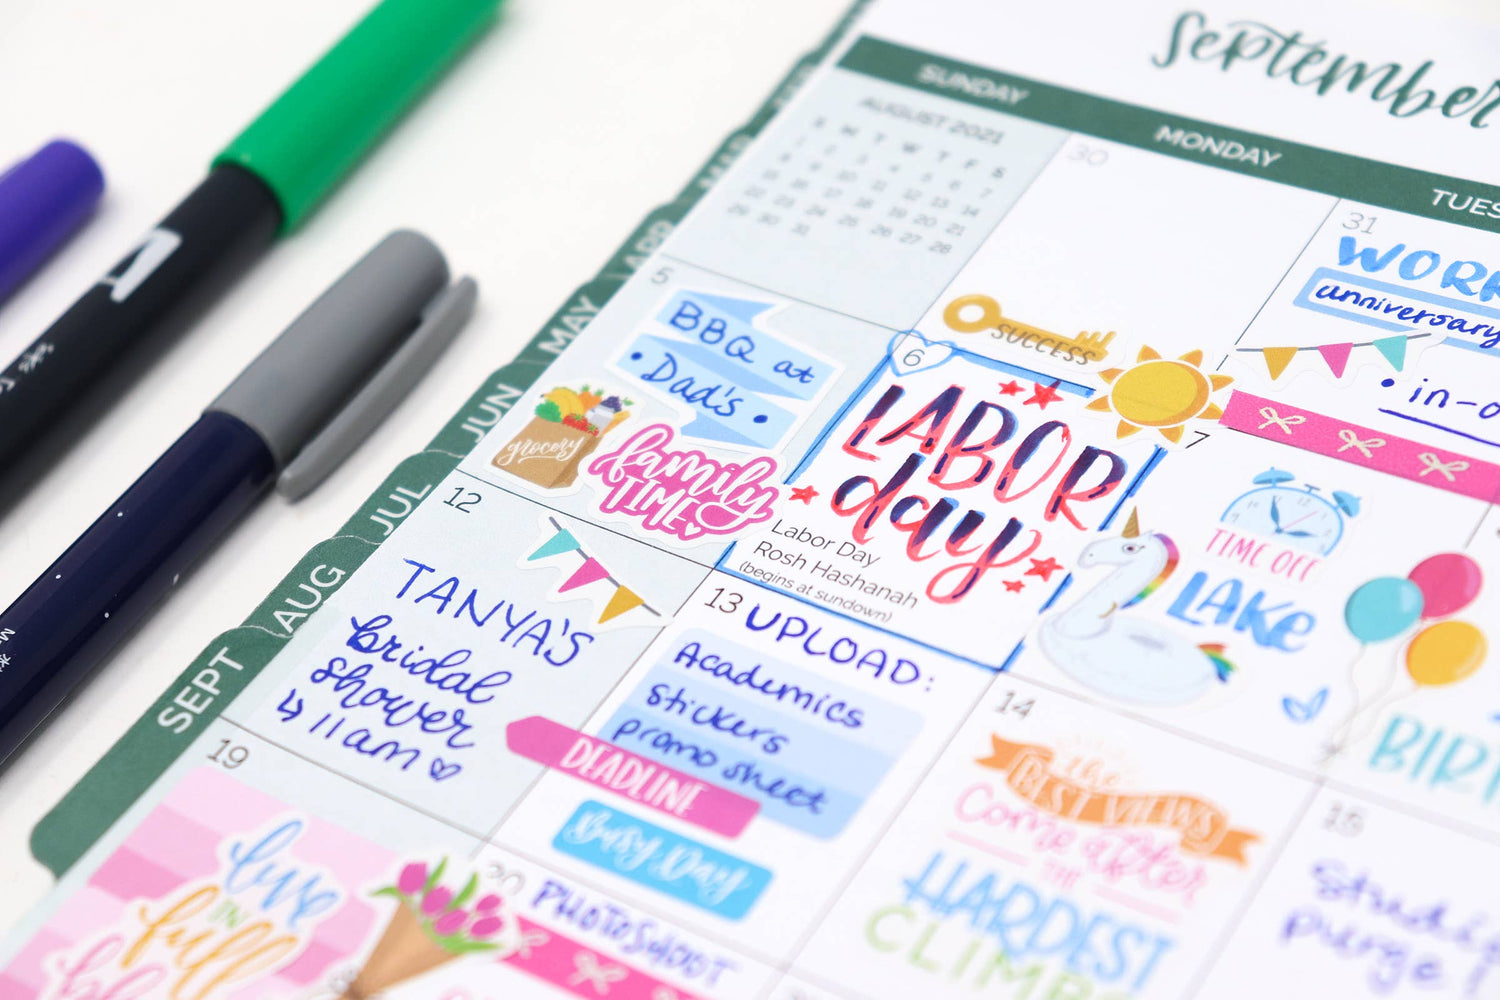 September
SUNDAY
MONDAY
AUGUST 2021
S M T W T F S
1 2 3 4 5 6 7
8 9 10 11 12 13 14
15 16 17 18 19 20 21
22 23 24 25 26 27 28
29 30 31
30
31
anniversary
SUCCESS
5
BBQ at
• Dad's •
grocery
family
TIME
6
LABOR
day
Labor Day
Rosh Hashanah
(begins at sundown)
7
TIME OFF
LAKE
12
TANYA'S
bridal
shower
↳ 11am ♡
13
UPLOAD:
Academics
stickers
promo sheet
DEADLINE
Busy Day
14
the
BEST VIEWS
Come after
THE
HARDEST
CLIMB
15
purge!
19
live
IN
full
20
PHOTOSHOOT
APR
MAY
JUN
JUL
AUG
SEPT